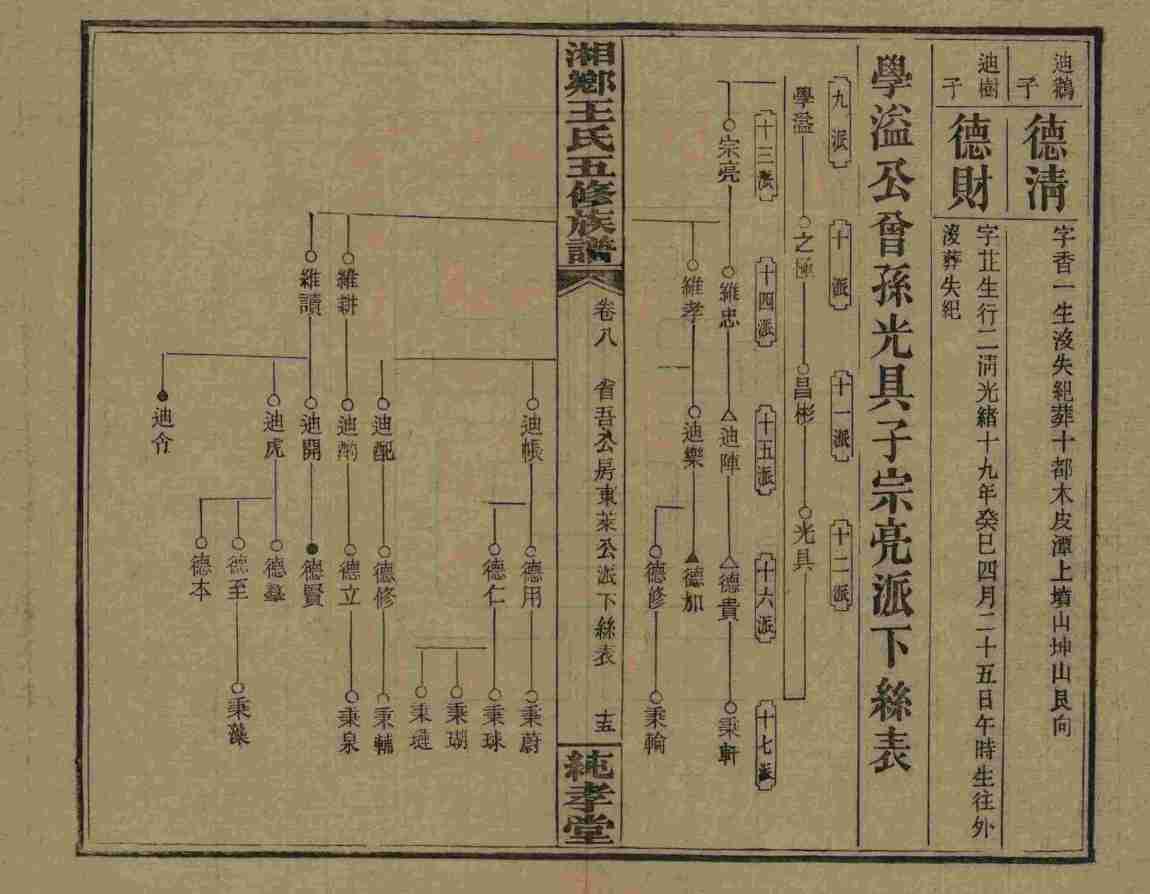 迪鵝子
德清
字香一生歿失紀葬十都木皮潭上墳山坤山艮向
迪樹子
德財
字芷生行二清光緒十九年癸巳四月二十五日午時生往外
歿葬失紀
學溢公曾孫光具子宗亮派下絲表
九派
十派
十一派
十二派
學溢
之極
昌彬
光具
十三派
十四派
十五派
十六派
十七派
宗亮
維忠
迪陣
德貴
秉軒
維孝
迪樂
德加
德修
秉輪
湘鄉王氏五修族譜
卷八
省吾公房東萊公派下絲表
十五
純孝堂
迪帳
德用
秉蔚
德仁
秉球
秉瑚
秉璉
迪配
德修
秉輔
維耕
迪酌
德立
秉泉
維讀
迪開
德賢
迪虎
德羣
德至
秉藻
德本
迪